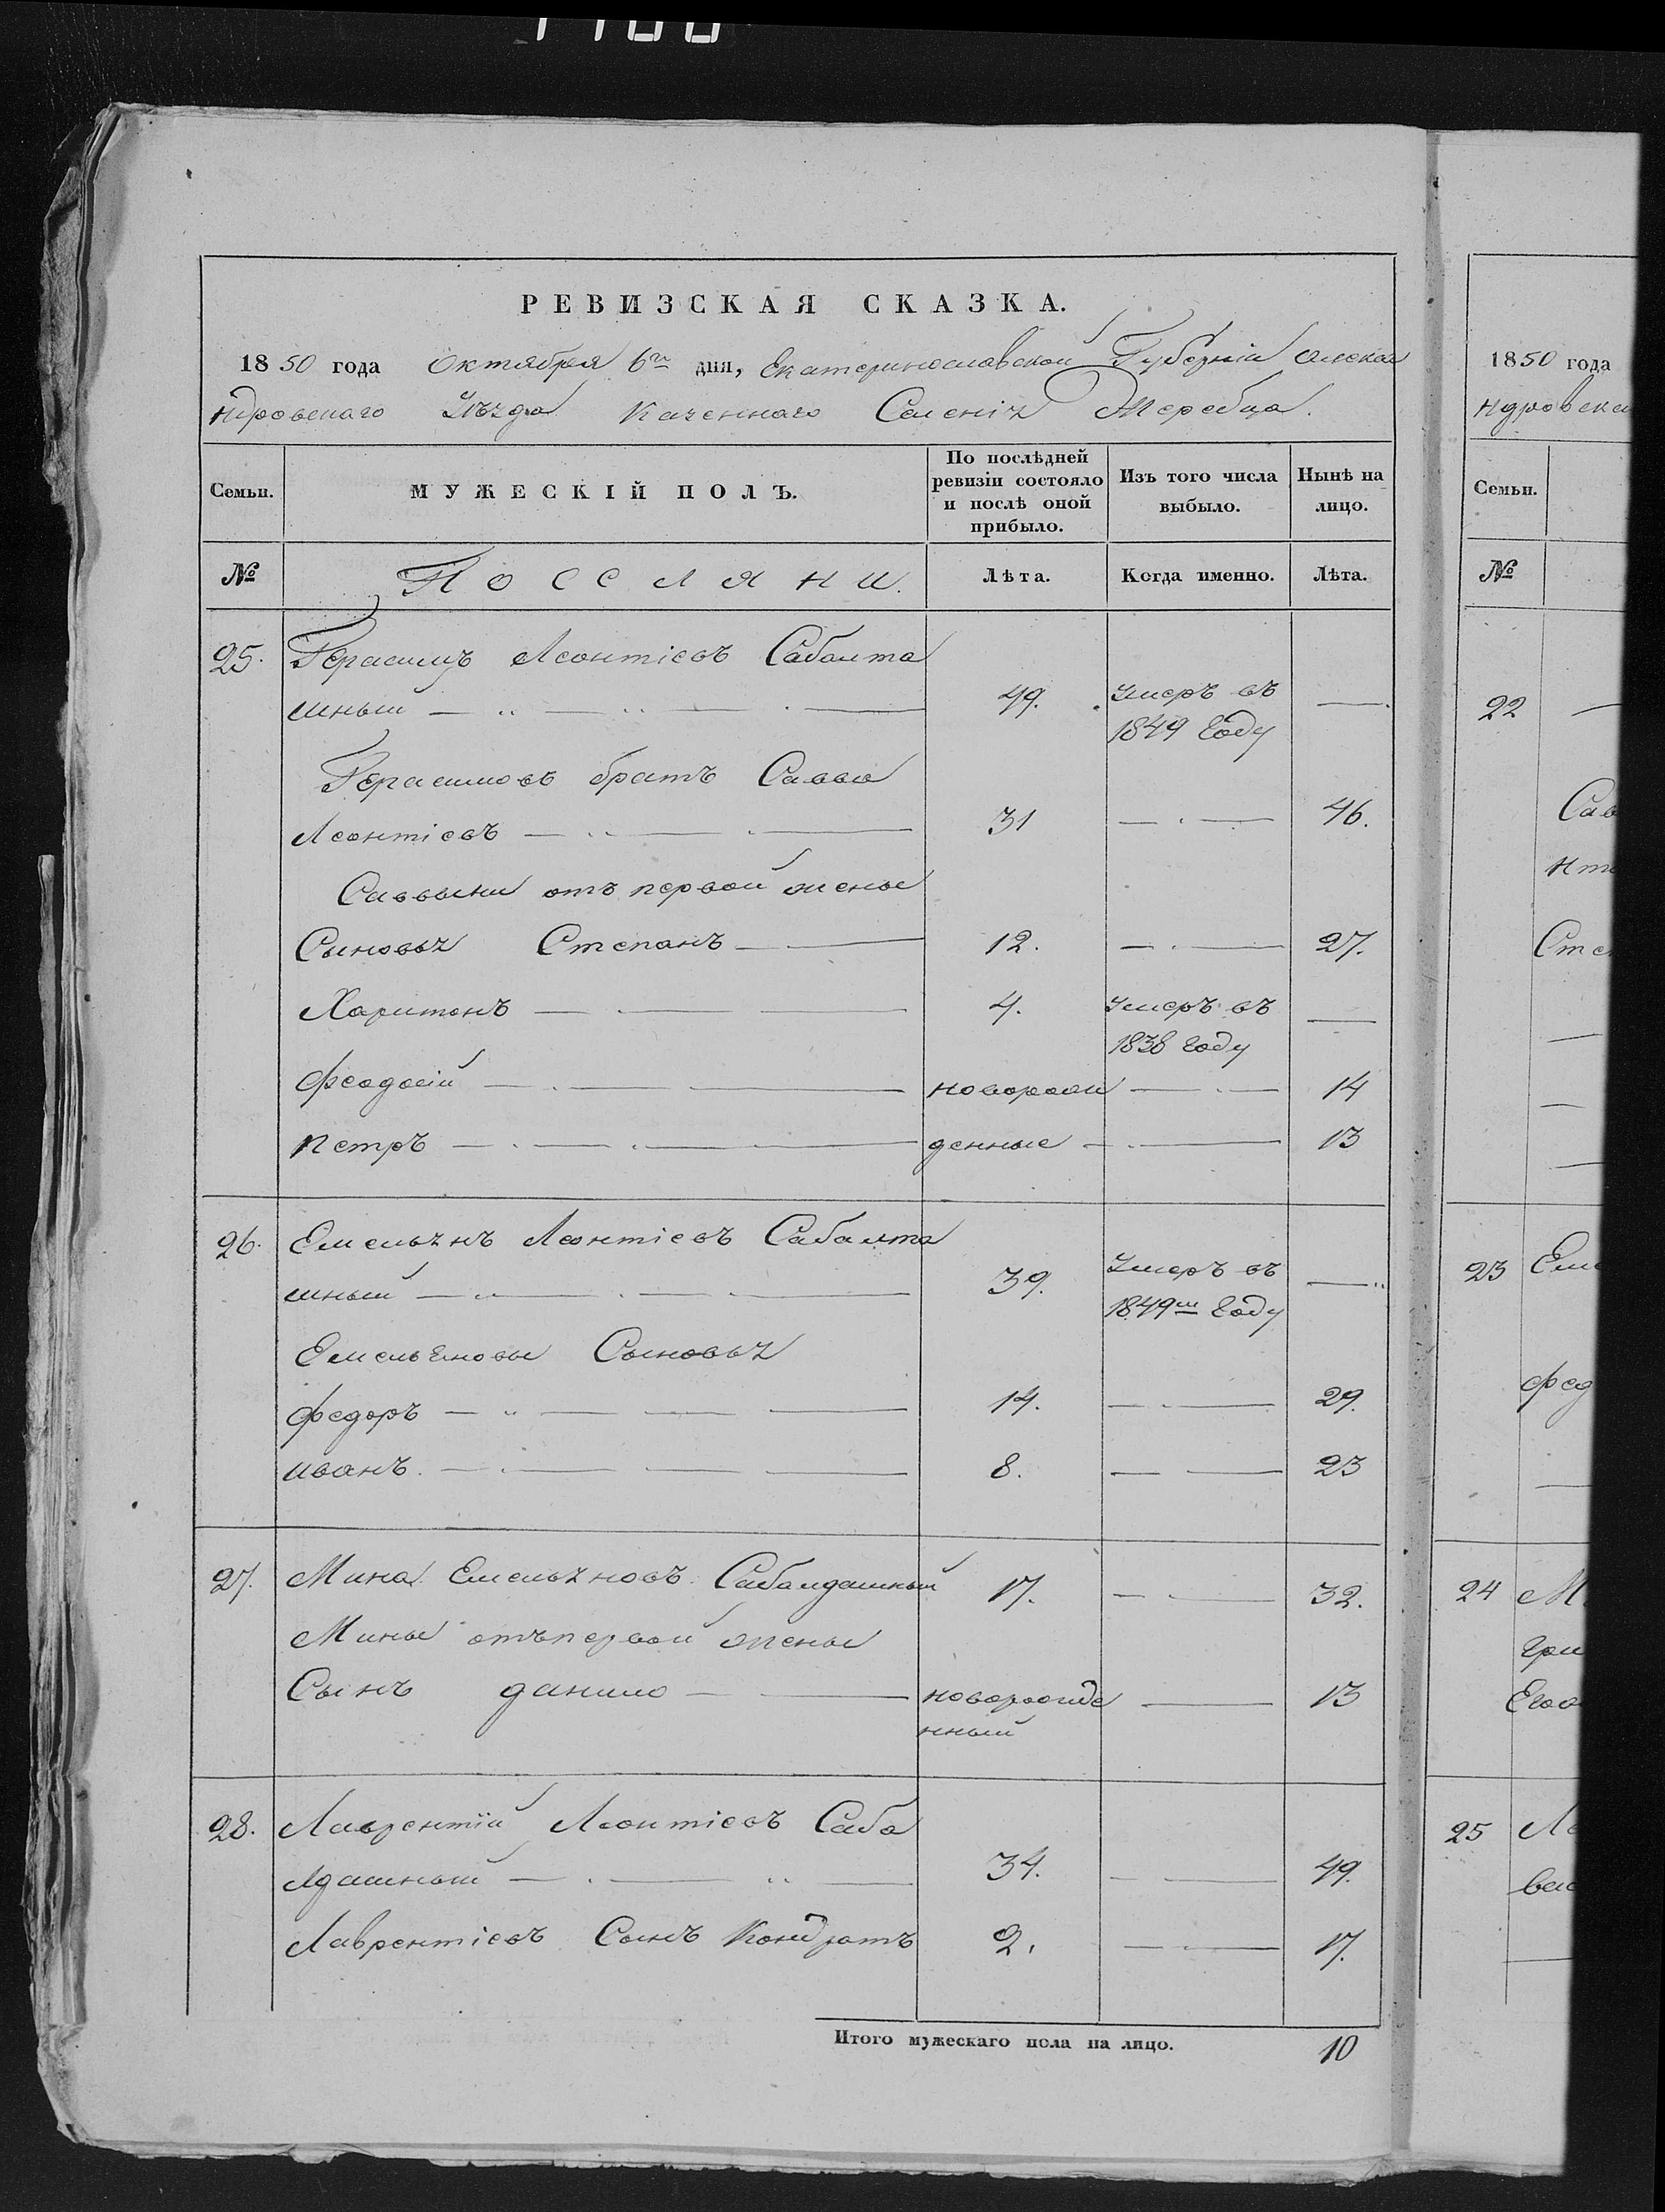 РЕВИЗСКАЯ СКАЗКА.
1850 года Октября 6го дня, Екатеринославской Губерніи Алекса
ндровскаго Уѣзда Казеннаго Селенія Жеребца.
Семьи.
МУЖЕСКІЙ ПОЛЪ.
По послѣдней ревизіи состояло и послѣ оной прибыло.
Изъ того числа выбыло.
Нынѣ на лицо.
№
Поселяни.
Лѣта.
Когда именно.
Лѣта.
25. Герасимъ Леонтіевъ Сабалта
шный 49. Умеръ въ
1849 Году
Герасимовъ братъ Савва
Леонтіевъ 31 46.
Саввыни отъ первой жены
Сыновья Степанъ 12. 27.
Харитонъ 4. Умеръ въ
1838 Году
Феодосій новорож 14
Петръ денные 13
26. Емельянъ Леонтіевъ Сабалта
шный 39. Умеръ въ
1849м Году
Емельяновы Сыновья
Федоръ 14. 29.
иванъ. 8. 23
27. Мина Емельяновъ Сабалдашный 17. 32.
Мины отъ первой жены
Сынъ данило новорожде 13
нный
28. Лаврентій Леонтіевъ Саба
лдашный 34. 49.
Лаврентіевъ Сынъ Кондратъ 2. 17.
Итого мужескаго пола на лицо. 10
1850 года
ндровска
Семьи.
№
22
Сав
Сте
23 Еме
Фед
24 М
25